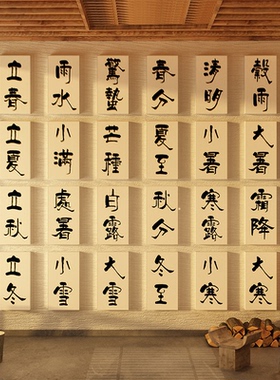 立春
雨水
驚蟄
春分
清明
穀雨
立夏
小滿
芒種
夏至
小暑
大暑
立秋
處暑
白露
秋分
寒露
霜降
立冬
小雪
大雪
冬至
小寒
大寒